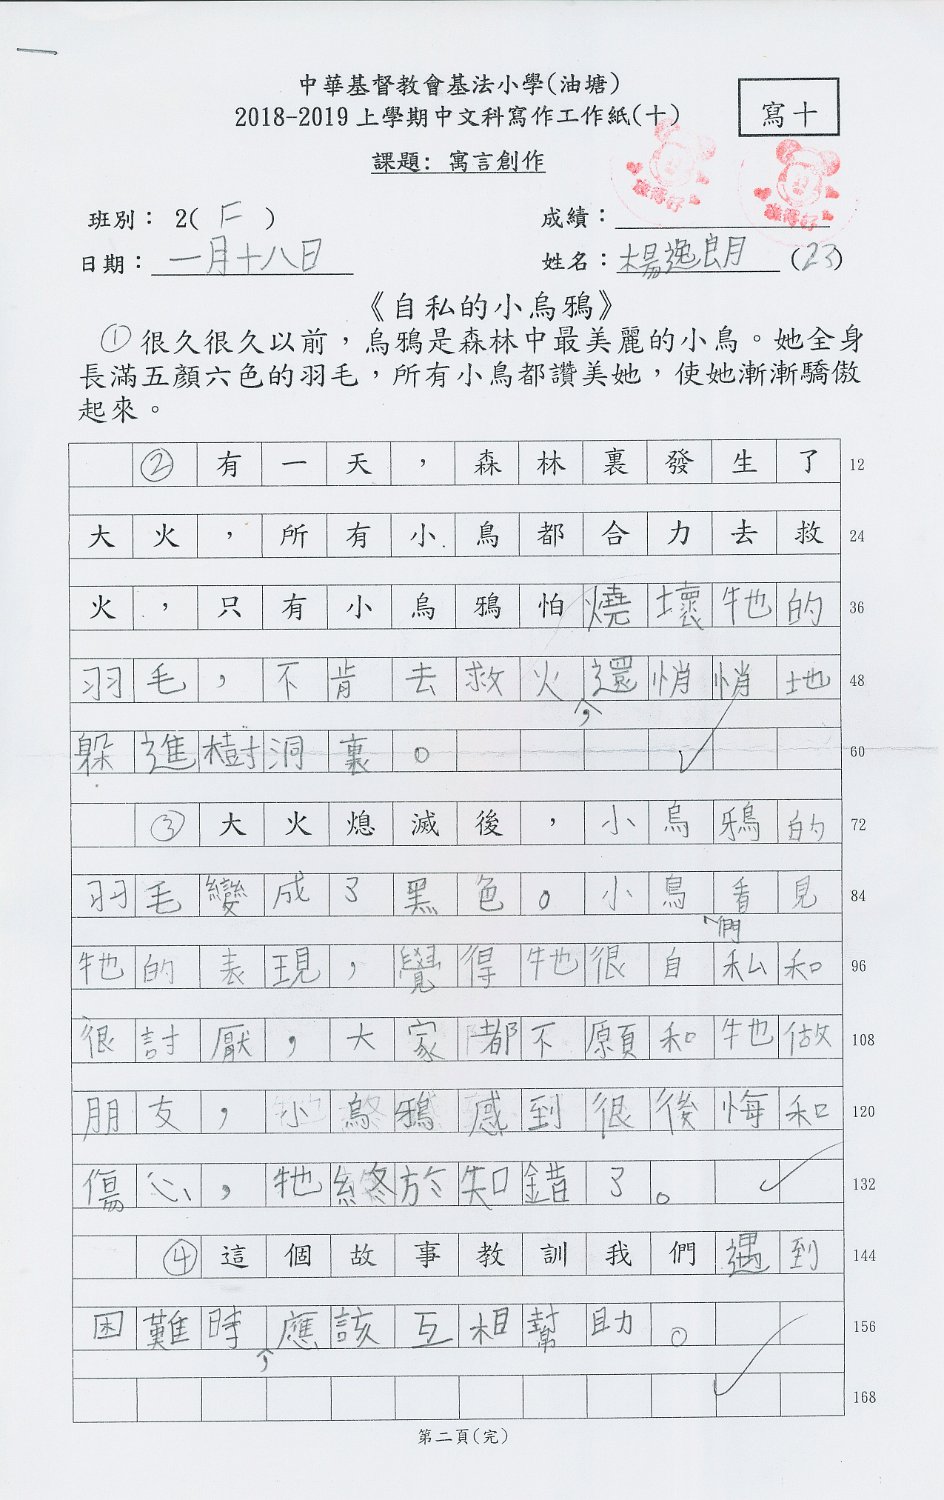 中華基督教會基法小學(油塘)
2018-2019上學期中文科寫作工作紙(十)
寫十
課題: 寓言創作
班別： 2( F )
成績：
日期：一月十八日
姓名：楊逸朗 (23)
《自私的小烏鴉》
①很久很久以前，烏鴉是森林中最美麗的小鳥。她全身
長滿五顏六色的羽毛，所有小鳥都讚美她，使她漸漸驕傲
起來。
②有一天，森林裏發生了 12
大火，所有小鳥都合力去救 24
火，只有小烏鴉怕燒壞牠的 36
羽毛，不肯去救火，還悄悄地 48
躲進樹洞裏。 60
③大火熄滅後，小烏鴉的 72
羽毛變成了黑色。小鳥們看見 84
牠的表現，覺得牠很自私和 96
很討厭，大家都不願和牠做 108
朋友，小烏鴉感到很後悔和 120
傷心，牠終於知錯了。 132
④這個故事教訓我們遇到 144
困難時，應該互相幫助。 156
168
第二頁(完)